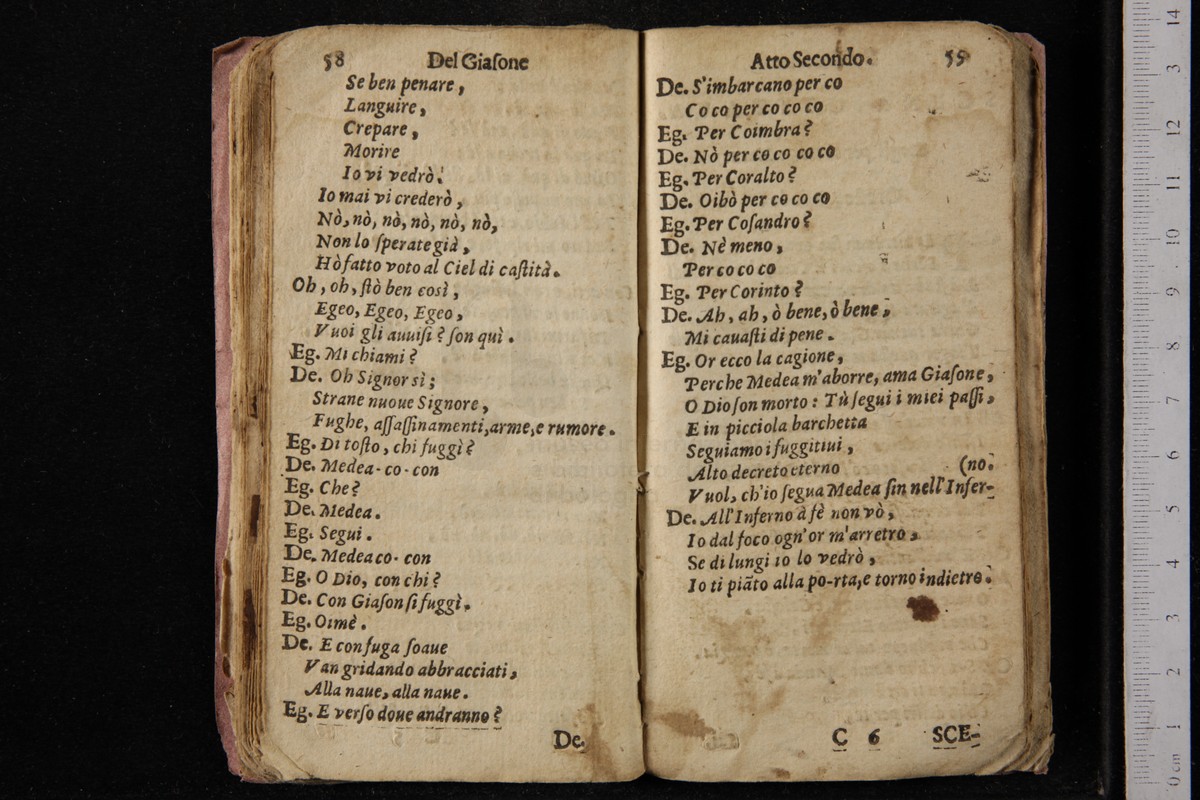 58 Del Giaſone
Se ben penare,
Languire,
Crepare,
Morire
Io vi vedrò:
Io mai vi crederò,
Nò, nò, nò, nò, nò, nò,
Non lo ſperate già,
Hò fatto voto al Ciel di caſtità.
Oh, oh, ſtò ben così,
Egeo, Egeo, Egeo,
Vuoi gli auuiſi? ſon quì.
Eg. Mi chiami?
De. Oh Signor sì;
Strane nuoue Signore,
Fughe, aſſaſſinamenti, arme, e rumore.
Eg. Di toſto, chi fuggì?
De. Medea-co-con
Eg. Che?
De. Medea.
Eg. Segui.
De. Medea co-con
Eg. O Dio, con chi?
De. Con Giaſon ſi fuggì.
Eg. Oimè.
De. E con fuga ſoaue
Van gridando abbracciati,
Alla naue, alla naue.
Eg. E verſo doue andranno?
De.
Atto Secondo. 59
De. S'imbarcano per co
Co co per co co co
Eg. Per Coimbra?
De. Nò per co co co co
Eg. Per Coralto?
De. Oibò per co co co
Eg. Per Coſandro?
De. Nè meno,
Per co co co
Eg. Per Corinto?
De. Ah, ah, ò bene, ò bene,
Mi cauaſti di pene.
Eg. Or ecco la cagione,
Perche Medea m'aborre, ama Giaſone,
O Dio ſon morto: Tù ſegui i miei paſſi,
E in picciola barchetta
Seguiamo i fuggitiui,
Alto decreto eterno (no.
Vuol, ch'io ſegua Medea ſin nell'Infer-
De. All'Inferno à fè non vò,
Io dal foco ogn'or m'arretro,
Se di lungi io lo vedrò,
Io ti piãto alla po-rta, e torno indietro.
C 6 SCE-
14
13
12
11
10
9
8
7
6
5
4
3
2
1
0 cm